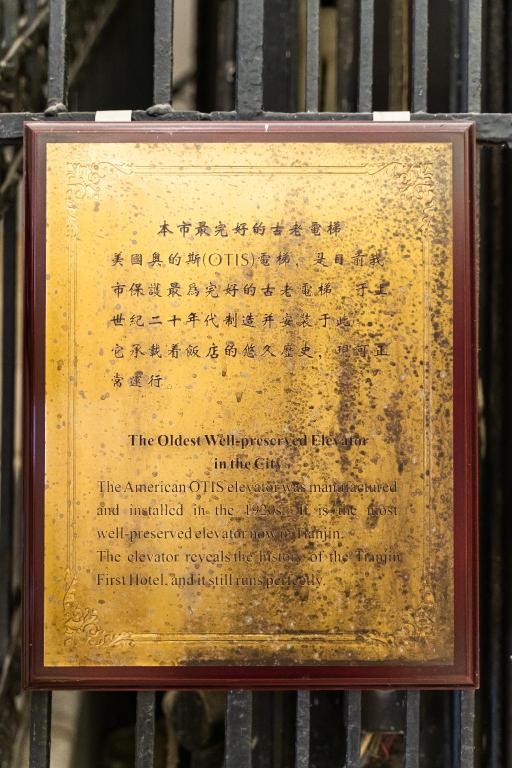 本市最完好的古老電梯
美國奧的斯(OTIS)電梯，是目前我
市保護最爲完好的古老電梯 于上
世紀二十年代制造并安裝于此
它承載着飯店的悠久歷史，現可正
常運行
The Oldest Well-preserved Elevator
in the City
The American OTIS elevator was manufactured
and installed in the 1920s. It is the most
well-preserved elevator now in Tianjin.
The elevator reveals the history of the Tianjin
First Hotel, and it still runs perfectly.